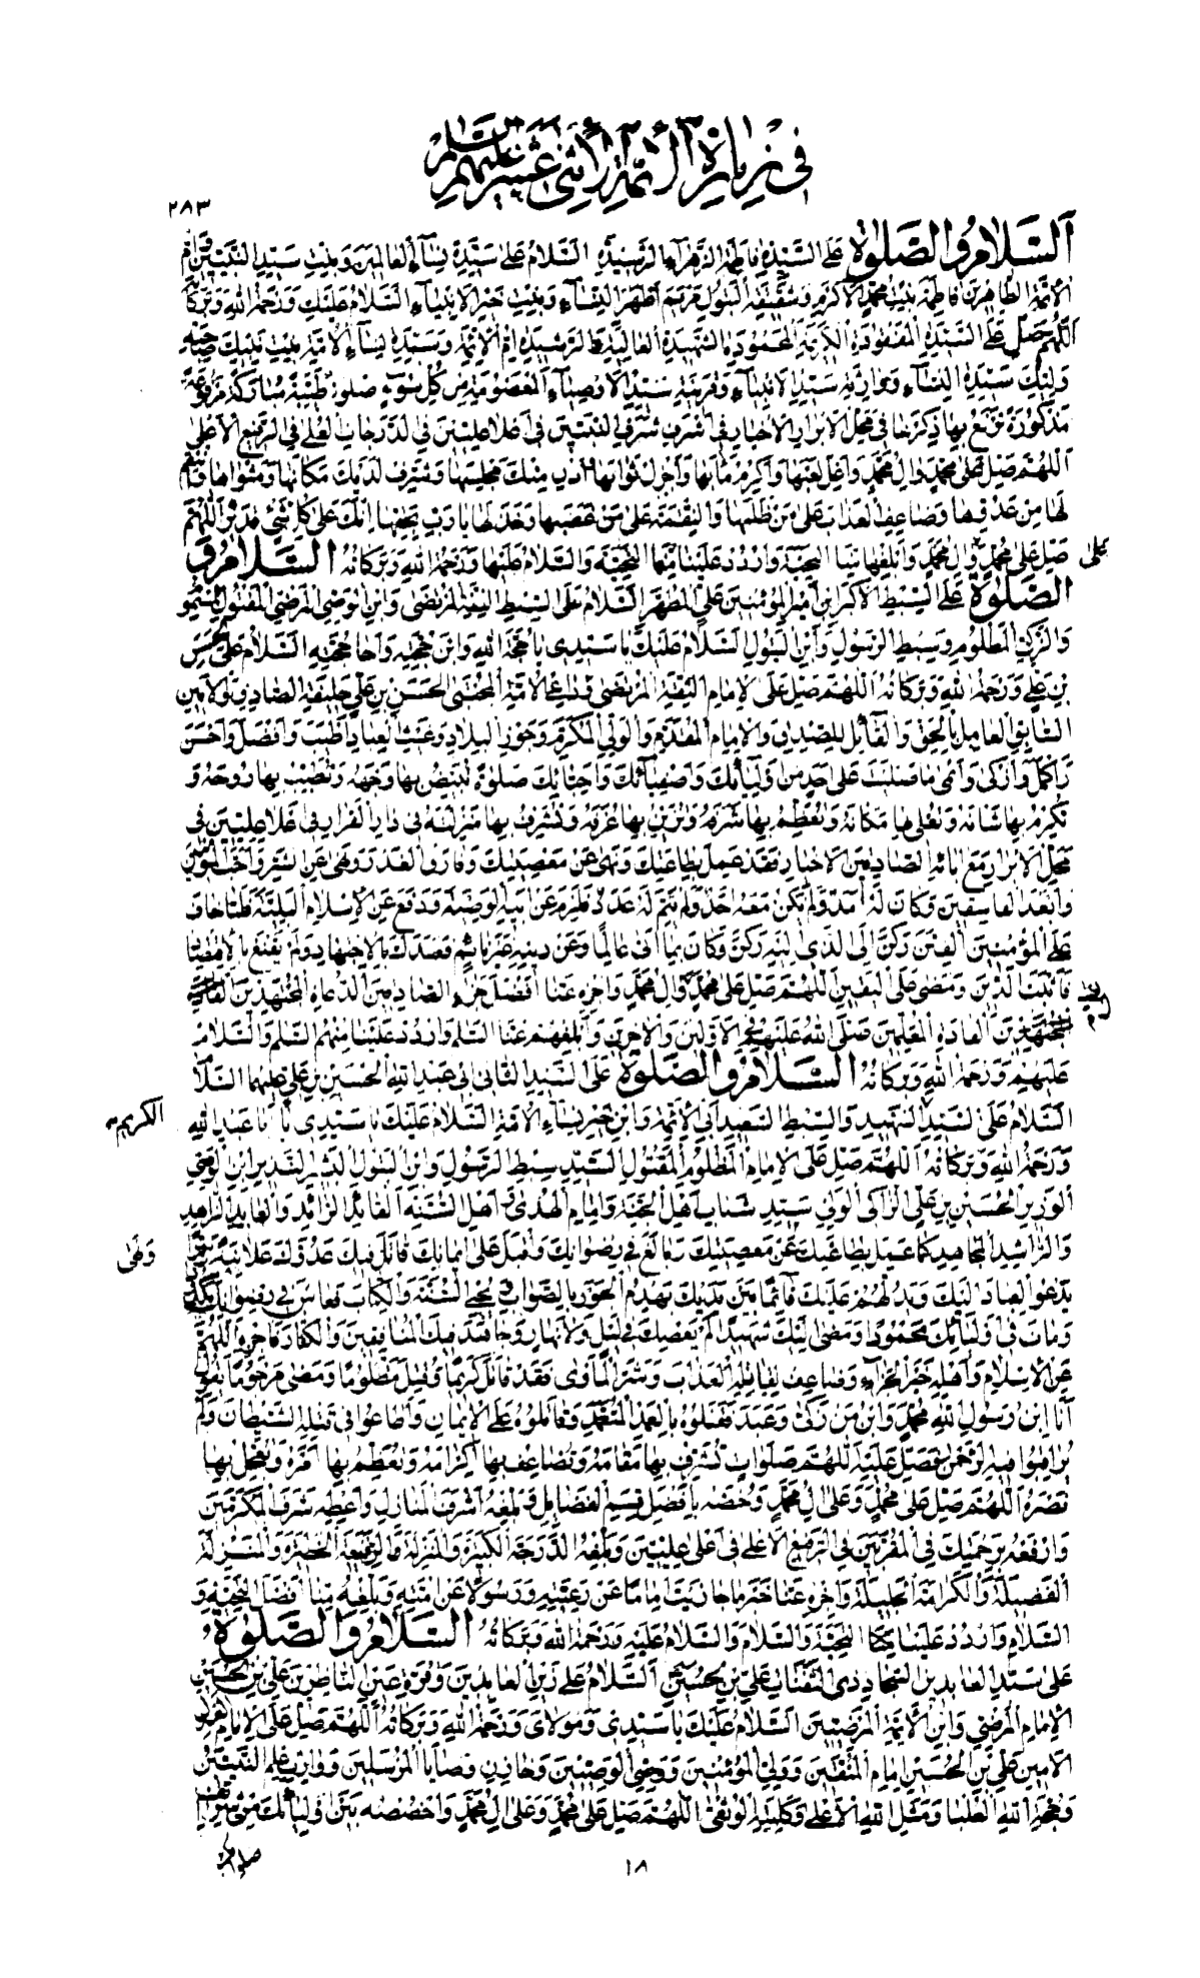 في زيارة الأئمة الاثنى عشر عليهم السلم
٢٨٣
السلام والصلوة على السيدة فاطمة الزهراء الرشيدة السلام على سيدة نساء العالمين وبنت سيد النبيين وام
الائمة الطاهرين فاطمة بنت محمد الاكرم وشقيقة البتول مريم اطهر النساء وبنت خير الانبياء السلام عليك ورحمة الله وبركاته
اللهم صل على السيدة المفقودة الكريمة المحمودة الشهيدة العالية الرشيدة ام الائمة وسيدة نساء الامة بنت نبيك صاحبة
وليك سيدة النساء ووارثة سيد الانبياء وقرينة سيد الاوصياء المعصومة من كل سوء صلوة طيبة مباركة
مذكورة ترفع بها ذكرها في محل الابرار الاخيار في اشرف شرف النبيين في اعلا عليين في الدرجات العلى في الرفيع الاعلى
اللهم صل على محمد وال محمد واعل كعبها واكرم مابها واجزل ثوابها وادن منك مجلسها وشرف لديك مكانها ومثواها
لها من عدوها وضاعف العذاب على من ظلمها والنقمة على من غصبها وخذ لها يا رب بحقها انك على كل شئ قدير اللهم
صل على محمد وال محمد وابلغها منا التحية واردد علينا منها التحية والسلام عليها ورحمة الله وبركاته السلام و
على
الصلوة على السبط الاكبر ابن امير المؤمنين علي المطهر السلام على السبط الثقة المرتضى وابن الوصي المرضي المقتول المسموم
والزكي المظلوم وسبط الرسول وابن البتول السلام عليك يا سيدي يا حجة الله وابن حجته واخا حجته السلام على الحسن
بن علي ورحمة الله وبركاته اللهم صل على الامام الثقة المرتضى المجتبى الحسن بن علي خليفة الصادق والامين
السابق العامل بالحق والقائل للصدق والامام المقدم والولي المكرم وحوز البلاد وغيث العباد اطيب وافضل واحسن
واكمل وازكى وانمى ما صليت على احد من اوليائك واصفيائك واحبائك صلوة تبيض بها وجهه وتطيب بها روحه و
تكرم بها شانه وتعلي بها مكانه وتعظم بها شرفه وتزين بها غرفه وتشرف بها منزلته في دار القرار في اعلا عليين في
محل الابرار مع ابائه الصادقين الاخيار فقد عمل بطاعتك ونهى عن معصيتك وفارق الغدر ونهى عن الشر واحب المؤمنين
وابعد الفاسقين وكان له امد ولم يكن معه احد ولم يتم له عدد فلزم عن ابيه الوصية ودفع عن الاسلام البلية فلما خاف
على المؤمنين الفتن ركن الى الذي اليه ركن وكان بما اتى عالما وعن دينه غير نائم فصدك بالاجتهاد ولم يقنع بالاقتصاد
فاثبت الدين ومضى على اليقين اللهم صل على محمد وال محمد واجزه عنا افضل جزاء الصادقين الدعاة المجتهدين القادة
القادة المعلمين صلى الله عليهم في الاولين والاخرين وابلغهم عنا السلم واردد علينا منهم السلم والسلام
عليهم ورحمة الله وبركاته السلام والصلوة على السيد الثاني ابي عبد الله الحسين بن علي عليهما السلام
السلام على السيد الشهيد والسبط السعيد ابي الائمة وابن خير نساء الامة السلام عليك يا سيدي يا ابا عبد الله
الكريم
ورحمة الله وبركاته اللهم صل على الامام المظلوم المقتول السيد سبط الرسول وابن البتول البشير النذير ابن الوصي
الوزير الحسين بن علي الزاكي الولي سيد شباب اهل الجنة وامام الهدى اهل السنة القائد الرائد والعابد الزاهد
والراشد المجاهد كما عمل بطاعتك عن معصيتك وبالغ في رضوانك واقبل على ايمانك قاتل فيك عدوك علانية
ونهى
يدعو العباد اليك ويدلهم عليك قائما بين يديك يهدم الجور بالصواب ويحيي السنة والكتاب فعاش في رضوانك
ومات في اوليائك محمودا ومضى اليك شهيدا لم يعصك في ليل ولا نهار وجاهد فيك المنافقين والكفار فاجزه اللهم
عن الاسلام واهله خير الجزاء وضاعف لقاتله العذاب وشر الماوى فقد قاتل كريما وقتل مظلوما ومضى مرحوما يقول
انا ابن رسول الله محمد وابن من زكى وعبد فقتلوه بالعمد المتعمد وقاتلوه على الايمان واطاعوا في قتله الشيطان ولم
يراقبوا فيه الرحمن فصل عليه اللهم صلوات تشرف بها مقامه وتضاعف بها اكرامه وتعظم بها امره وتعجل بها
نصره اللهم صل على محمد وعلى ال محمد وخصه بافضل قسم الفضائل وبلغه اشرف المنازل واعطه شرف المكرمين
وارفعه برحمتك في المقربين في الرفيع الاعلى في اعلى عليين وبلغه الدرجة الكبيرة والمنزلة
الفضيلة والكرامة الجليلة واجزه عنا خير ما جازيت اماما عن رعيته ورسولا عن امته وبلغه منا افضل التحية و
السلام واردد علينا منه التحية والسلام والسلام عليه ورحمة الله وبركاته السلام والصلوة
على سيد العابدين السجاد ذي الثفنات علي بن الحسين السلام على زين العابدين وقرة عين الناظرين علي بن الحسين
الامام المرضي وابن الائمة المرضيين السلام عليك يا سيدي ومولاي ورحمة الله وبركاته اللهم صل على الامام
الامين علي بن الحسين امام المتقين وولي المؤمنين ووصي الوصيين وخازن وصايا المرسلين ووارث علم النبيين
وحجة الله العليا ومثل الله الاعلى وكلمته الوثقى اللهم صل على محمد وعلى ال محمد واخصصه بين اوليائك
١٨